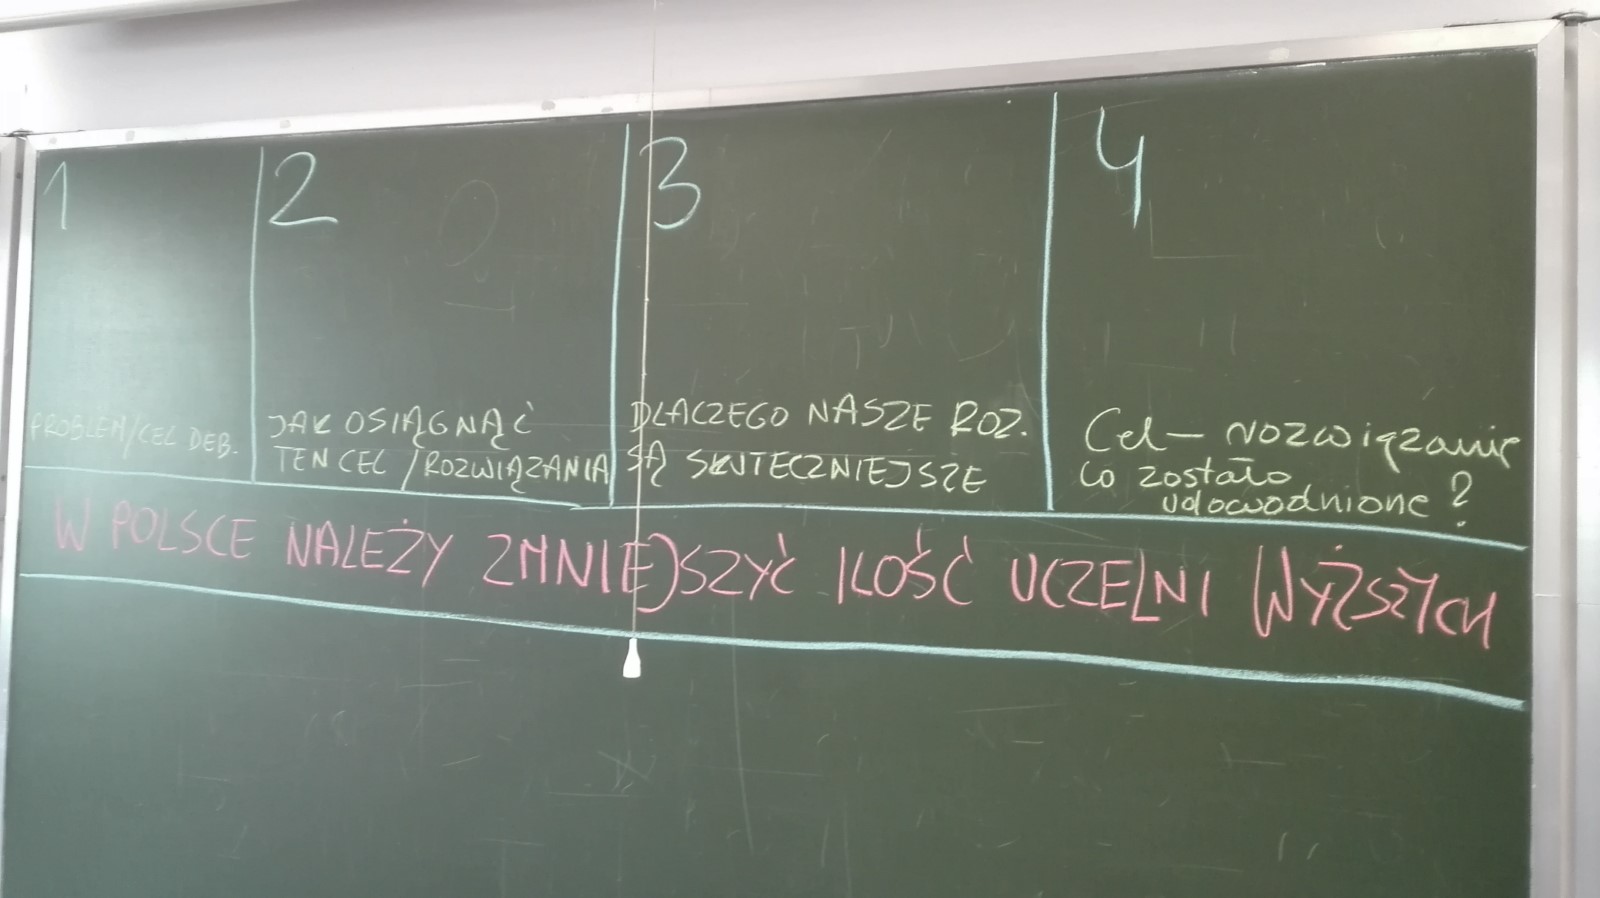 1
PROBLEM/CEL DEB.
2
JAK OSIĄGNĄĆ
TEN CEL /ROZWIĄZANIA
3
DLACZEGO NASZE ROZ.
SĄ SKUTECZNIEJSZE
4
Cel – rozwiązanie
Co zostało
udowodnione?
W POLSCE NALEŻY ZMNIEJSZYĆ ILOŚĆ UCZELNI WYŻSZYCH